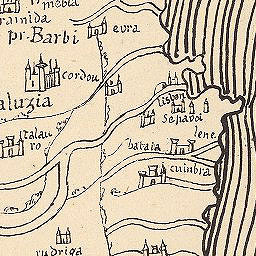 mebia
rainida
pr. Barbi
evra
cordou
aluzia
lisbona
senavoi
talau
ro
lene
bataia
cuinbra
rudriga